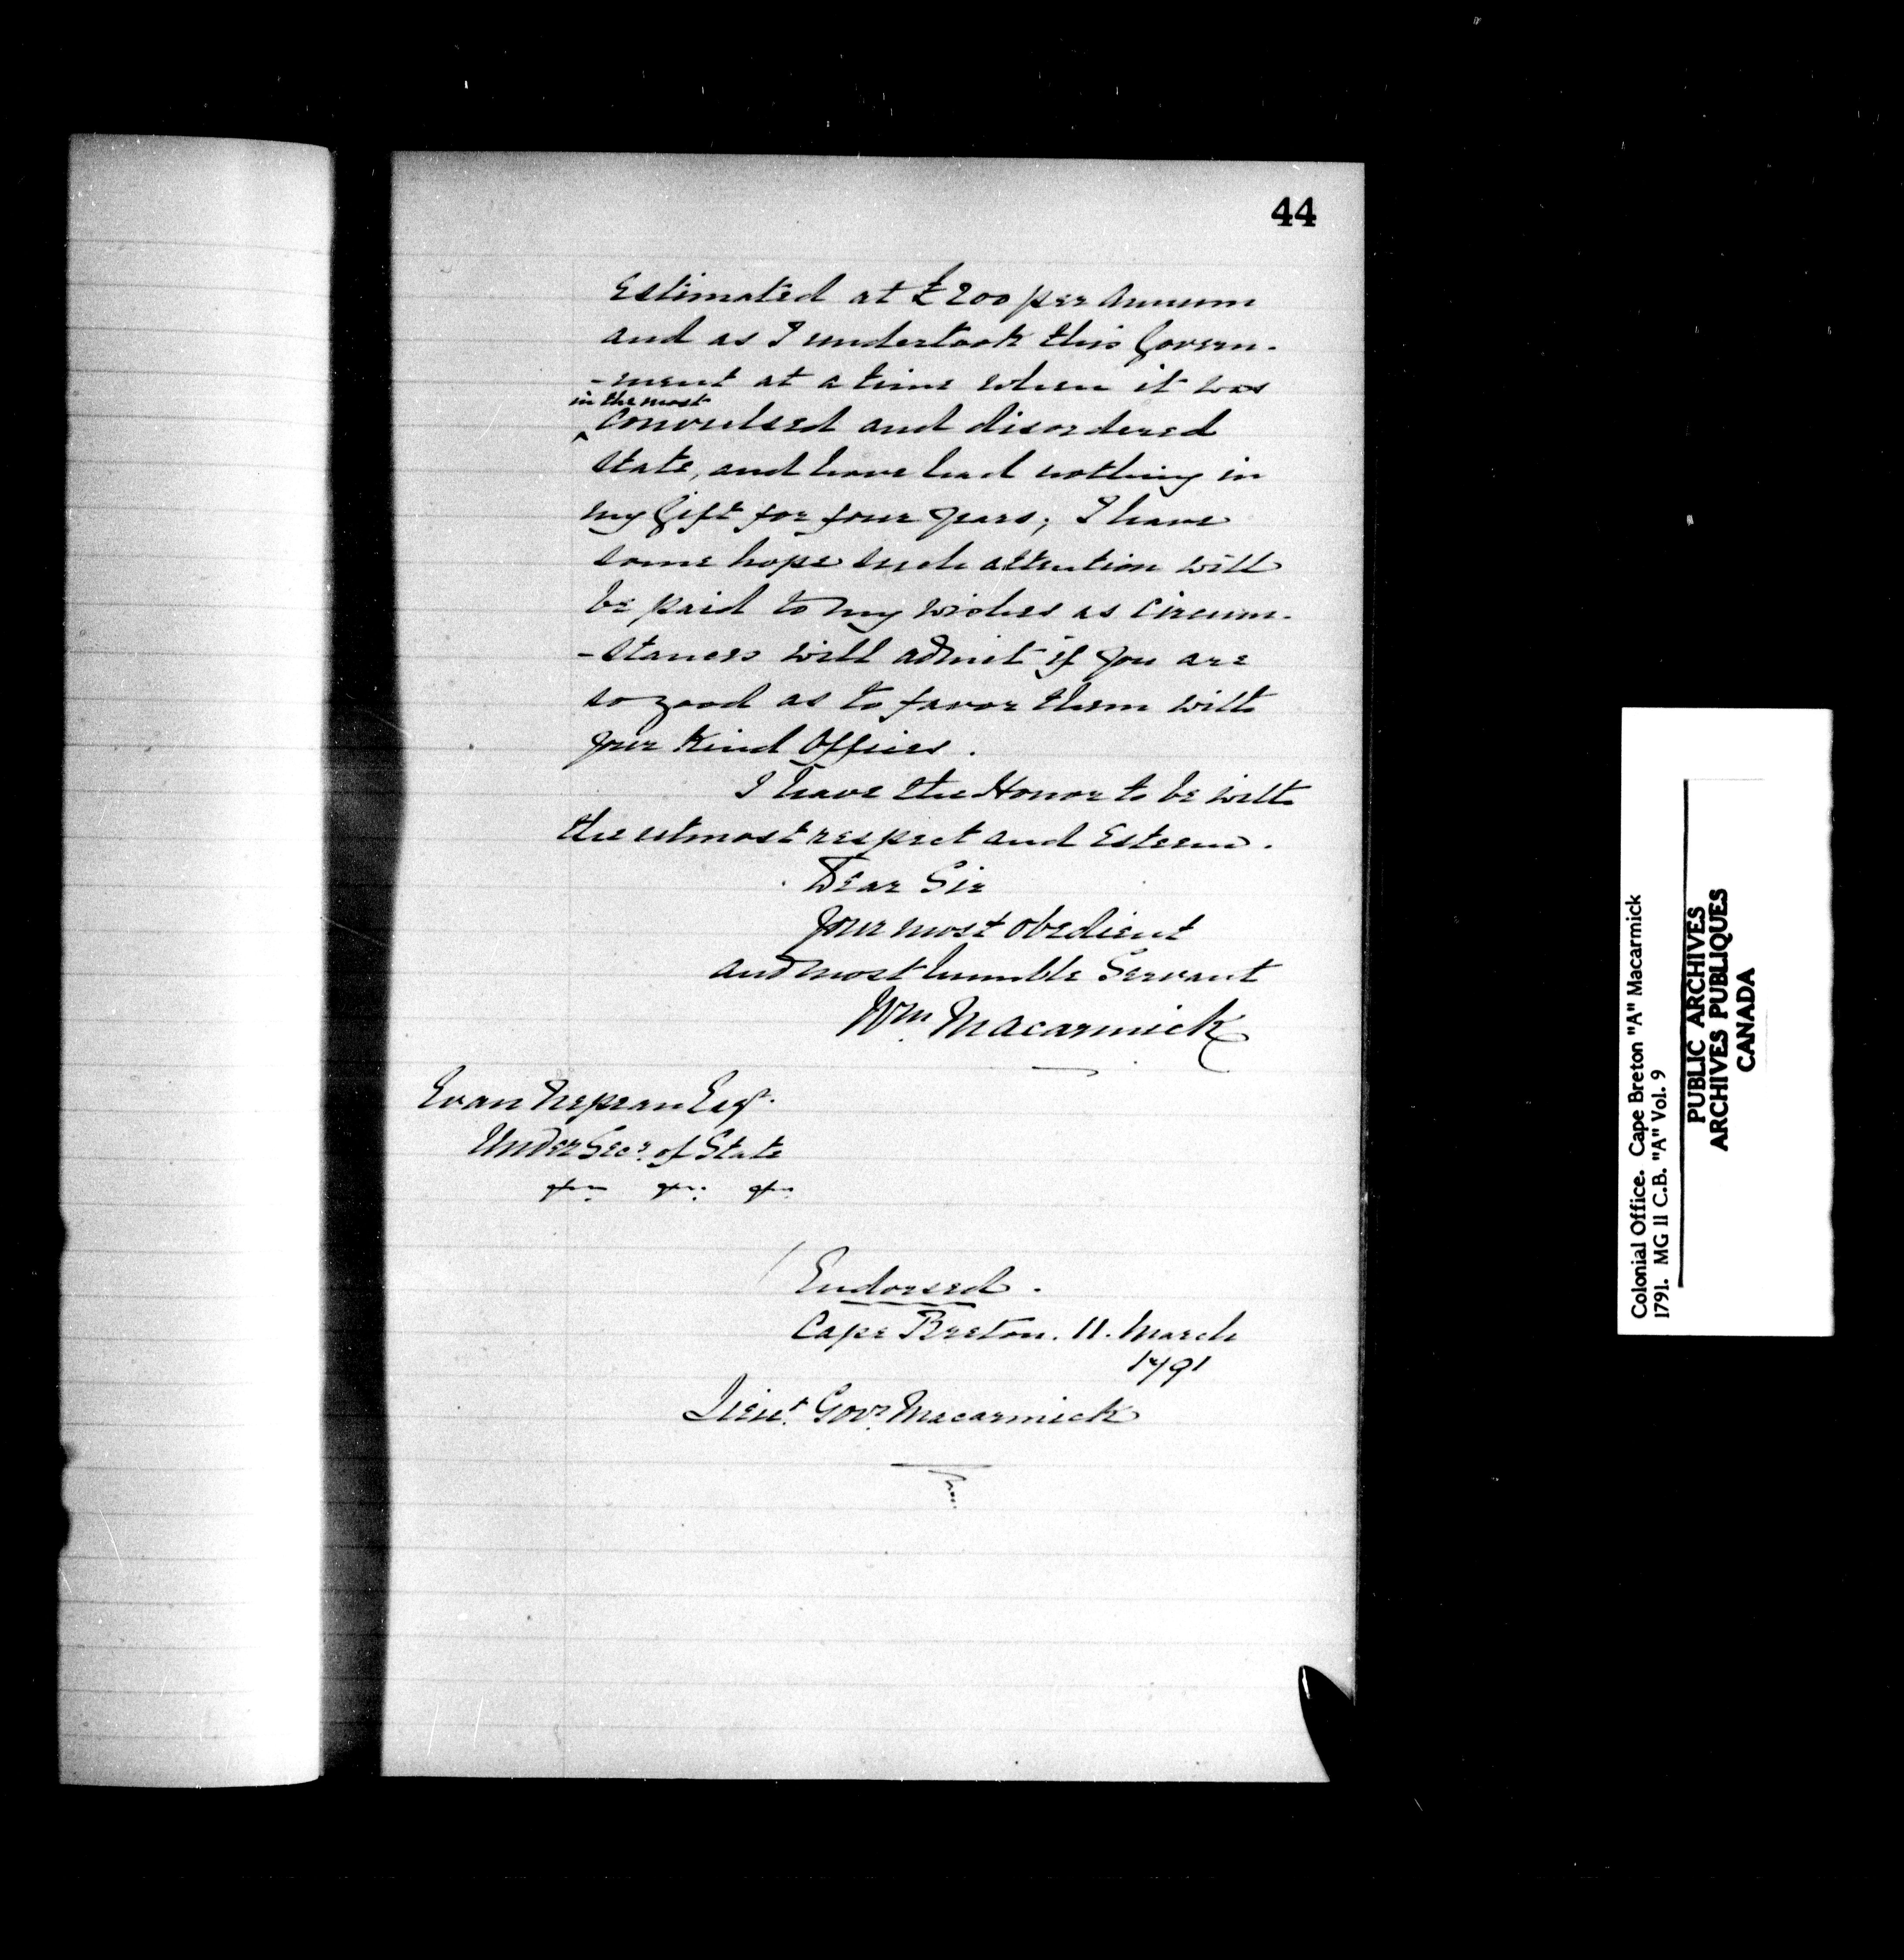 44
Estimated at £200 per Annum
and as I undertook this Govern-
-ment at a time when it was
in the most
^ Convulsed and disordered
State, and have had nothing in
my Gift for four years; I have
some hope such attention will
be paid to my wishes as Circum-
-stances will admit if you are
so good as to favor them with
your Kind Offices.
I have the Honor to be with
the utmost respect and Esteem.
Dear Sir
your most obedient
and most humble Servant
Wm. Macarmick
Evan Nepean Esqr.
Under Secr. of State
&c. &c. &c.
Endorsed.
Cape Breton. 11. March
1791
Lieut. Govr. Macarmick
Colonial Office. Cape Breton "A" Macarmick
1791. MG 11 C.B. "A" Vol. 9
PUBLIC ARCHIVES
ARCHIVES PUBLIQUES
CANADA